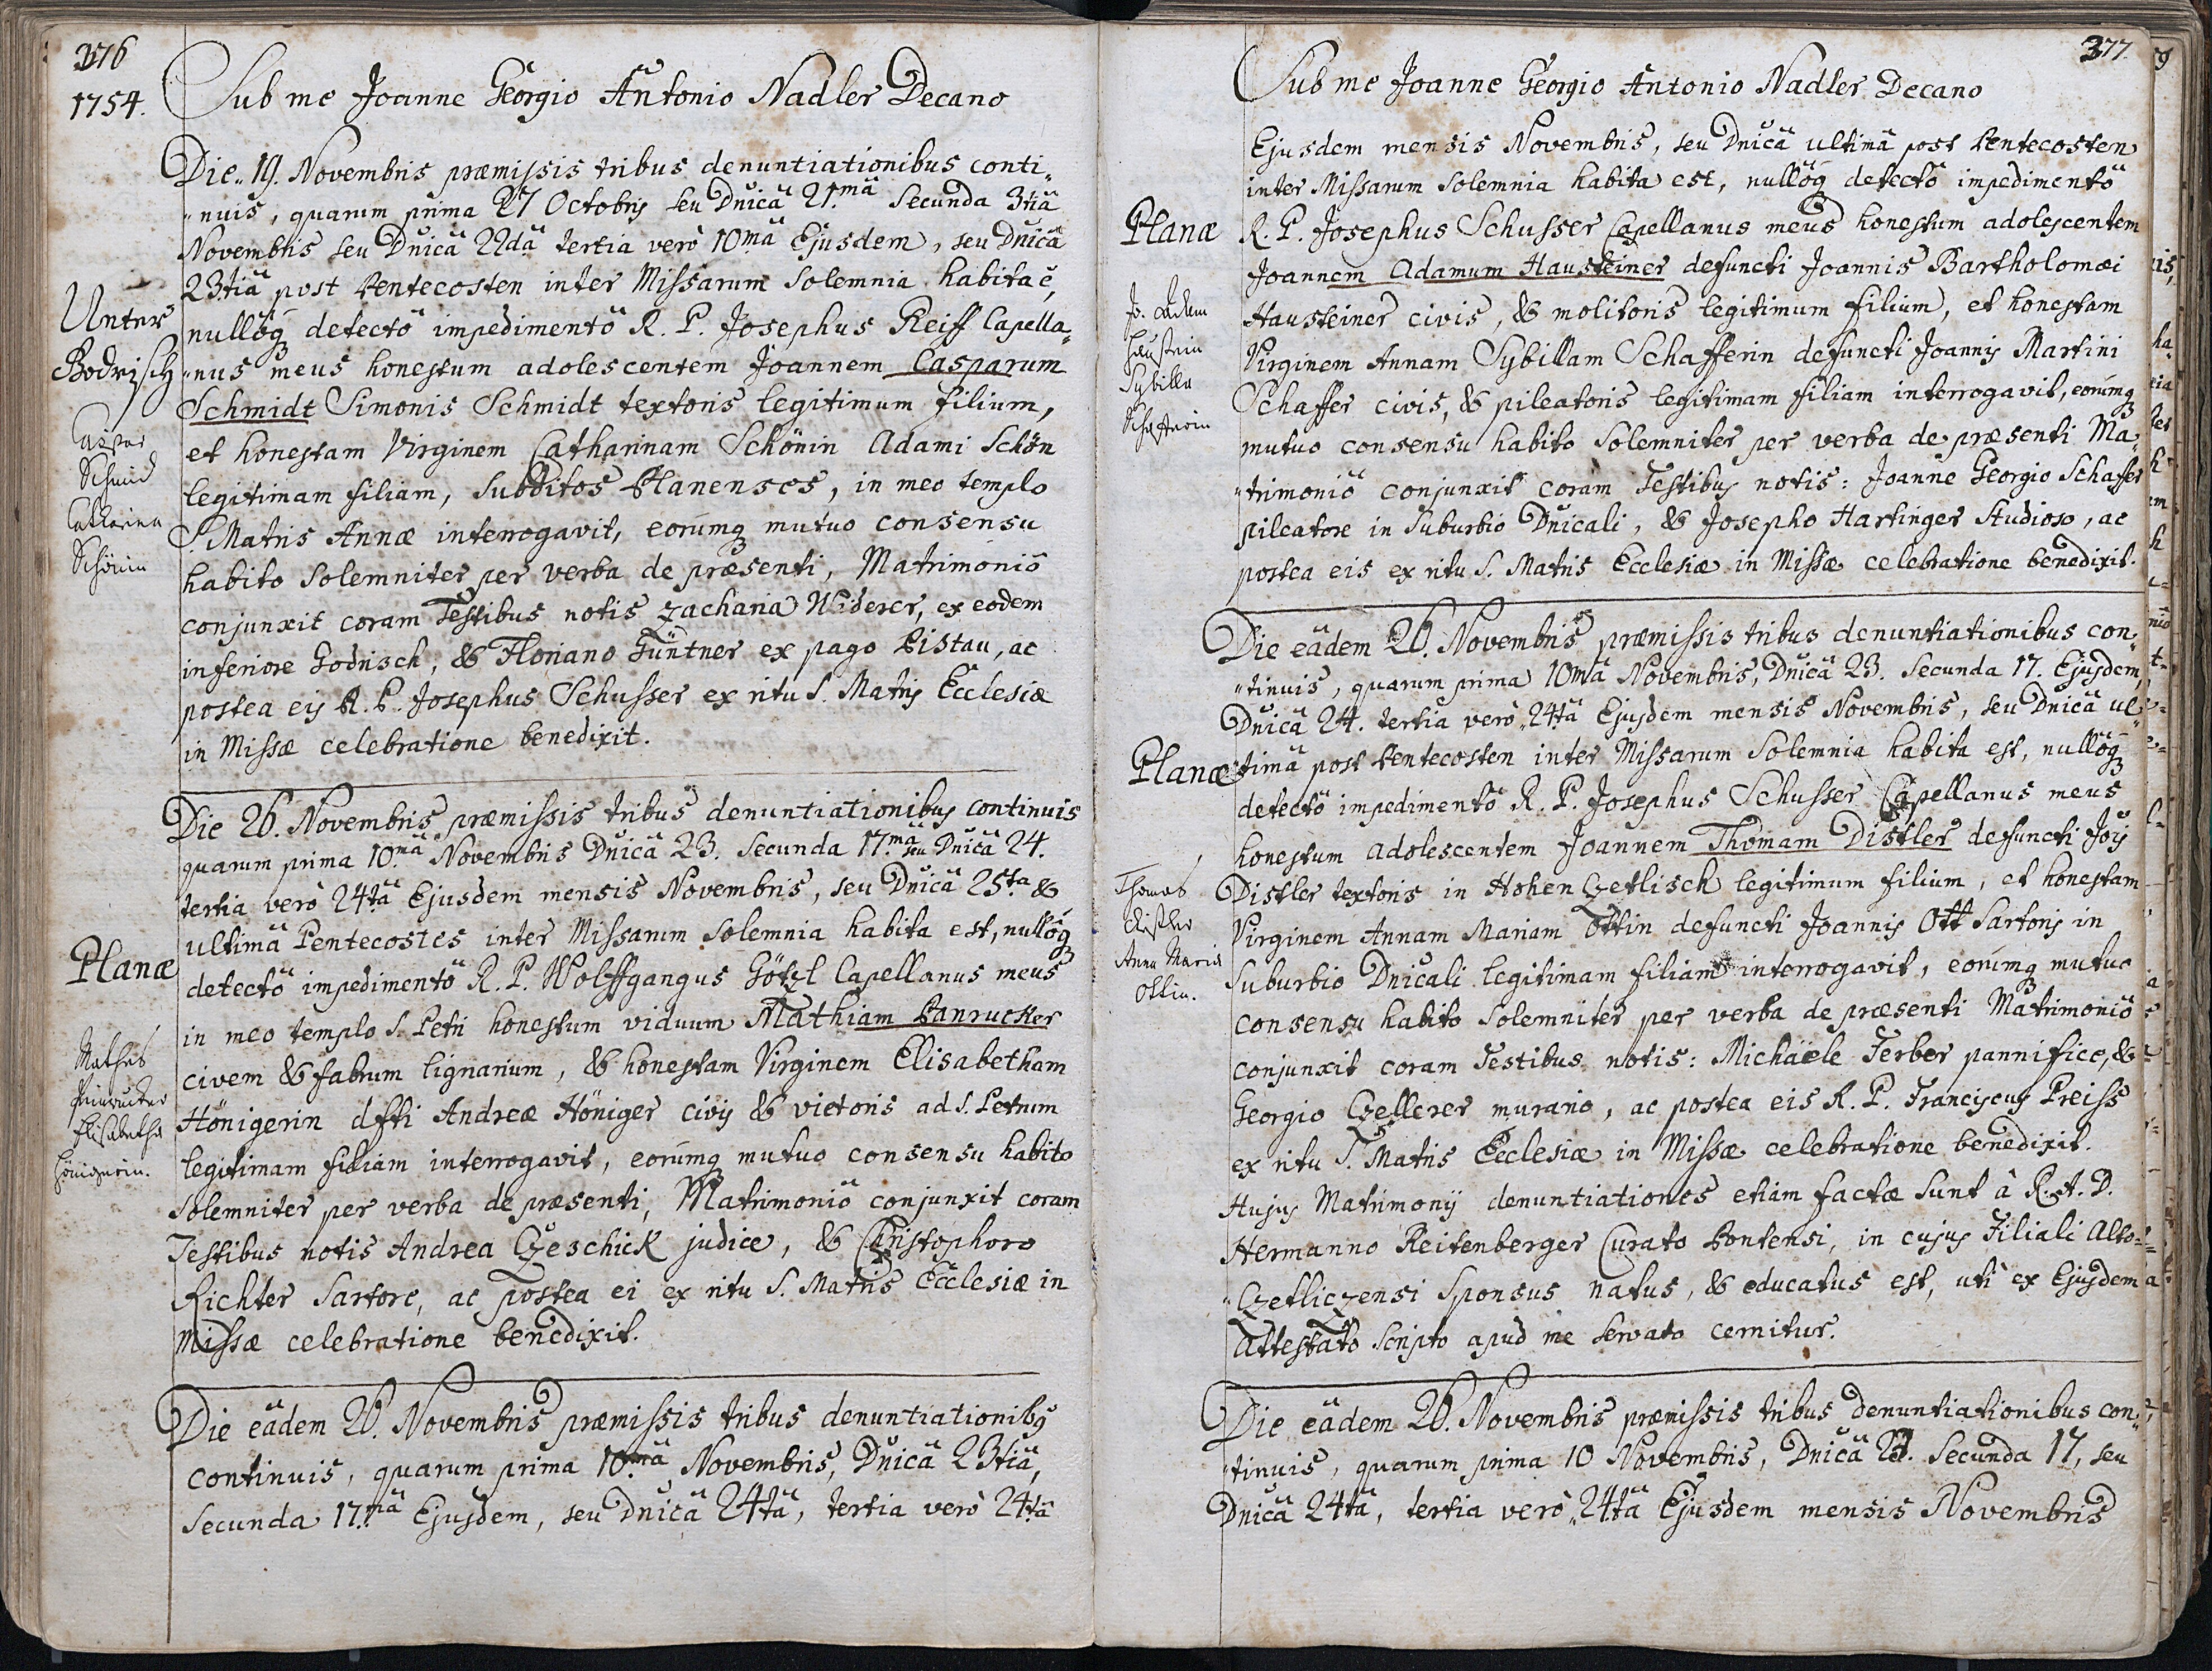 376
1754.
Sub me Joanne Georgio Antonio Nadler Decano
Die 19. Novembris præmissis tribus denuntiationibus conti„
„nuis, quarum prima 27 Octobris seu Dnicâ 21.mâ Secunda 3tiâ
Novembris seu Dnicâ 22dâ tertia verò 10mâ Ejusdem, seu Dnicâ
23tiâ post Pentecosten inter Missarum Solemnia habita ē,
Unter
Godrisch
nullôq detectô impedimentô R. P. Josephus Reiff Capella„
„nus meus honestum adolescentem Joannem Casparum
Schmidt Simonis Schmidt textoris legitimum filium,
Caspar
Schmid
Catharina
Schönin
et honestam Virginem Catharinam Schönin Adami Schön
legitimam filiam, Subditos Planenses, in meo templo
S. Matris Annæ interrogavit, eorumq mutuo consensu
habito Solemniter per verba de præsenti, Matrimoniô
conjunxit coram Testibus notis Zacharia Widerer, ex eodem
inferiore Godrisch, & Floriano Güntner ex pago Pistau, ac
postea eis R. P. Josephus Schusser ex ritu S. Matris Ecclesiæ
in Missæ celebratione benedixit.
Die 26. Novembris præmissis tribus denuntiationibus continuis
quarum prima 10.mâ Novembris Dnicâ 23. Secunda 17.mâ seu Dnicâ 24.
tertia verò 24tâ Ejusdem mensis Novembris, seu Dnicâ 25ta &
ultimâ Pentecostes inter Missarum Solemnia habita est, nullôq
Planæ
detectô impedimentô R. P. Wolffgangus Götzl Capellanus meus
in meo templo S. Petri honestum viduum Mathiam Panrucker
Mathes
Elisabetha
Hönigerin.
civem & fabrum lignarium, & honestam Virginem Elisabetham
Hönigerin dfti Andreæ Höniger civis & vietoris ad S. Petrum
legitimam filiam interrogavit, eorumq mutuo consensu habito
Solemniter per verba de præsenti, Matrimoniô conjunxit coram
Testibus notis Andrea Czeschick judice, & Christophoro
Richter Sartore, ac postea ei ex ritu S. Matris Ecclesiæ in
Missæ celebratione benedixit.
Die eâdem 26. Novembris præmissis tribus denuntiationibq
continuis, quarum prima 10.mâ Novembris, Dnicâ 23tiâ,
Secunda 17.mâ Ejusdem, seu Dnicâ 24tâ, tertia verò 24tâ
377.
Sub me Joanne Georgio Antonio Nadler Decano
Ejusdem mensis Novembris, seu Dnicâ ultimâ post Pentecosten
inter Missarum Solemnia habita est, nullôq detectô impedimentô
Planæ
R. P. Josephus Schusser Capellanus meus honestum adolescentem
Joannem Adamum Hausteiner defuncti Joannis Bartholomæi
Jo. Adam
Haustein
Sybilla
Schafferin
Hausteiner civis, & molitoris legitimum filium, et honestam
Virginem Annam Sybillam Schafferin defuncti Joannis Martini
Schaffer civis, & pileatoris legitimam filiam interrogavit, eorumq
mutuo consensu habito Solemniter per verba de præsenti Ma„
„trimoniô conjunxit coràm Testibus notis: Joanne Georgio Schaffer
pileatore in Suburbio Dnicali, & Josepho Hartinger Studioso, ac
postea eis ex ritu S. Matris Ecclesiæ in Missæ celebratione benedixit.
Die eâdem 26. Novembris præmissis tribus denuntiationibus con„
„tinuis, quarum prima 10mâ Novembris, Dnicâ 23. Secunda 17. Ejusdem,
Dnicâ 24. tertia verò 24tâ Ejusdem mensis Novembris, seu Dnicâ ul„
Planæ
„timâ post Pentecosten inter Missarum Solemnia habita est, nullôq
detectô impedimentô R. P. Josephus Schusser Capellanus meus
honestum adolescentem Joannem Thomam Distler defuncti Jois
Thomas
Distler
Anna Maria
Ottin.
Distler textoris in Hohen Czetlisch legitimum filium, et honestam
Virginem Annam Mariam Ottin defuncti Joannis Ott Sartoris in
Suburbio Dnicali legitimam filiam interrogavit, eorumq mutuo
consensu habito Solemniter per verba de præsenti Matrimoniô
conjunxit coram Testibus notis: Michäele Ferber pannifice, &
Georgio Czellerer murario, ac postea eis R. P. Franciscus Preiss
ex ritu S. Matris Ecclesiæ in Missæ celebratione benedixit.
Hujus Matrimonij denuntiationes etiam factæ sunt à R. A. D.
Hermanno Reitenberger Curato Pontensi, in cujus Filiali Alto„
„Czetliczensi Sponsus natus, & educatus est, uti ex Ejusdem
Attestato Scripto apud me servato cernitur.
Die eâdem 26. Novembris præmissis tribus denuntiationibus con„
„tinuis, quarum prima 10 Novembris, Dnicâ 23. Secunda 17, seu
Dnicâ 24tâ, tertia verò 24tâ Ejusdem mensis Novembris